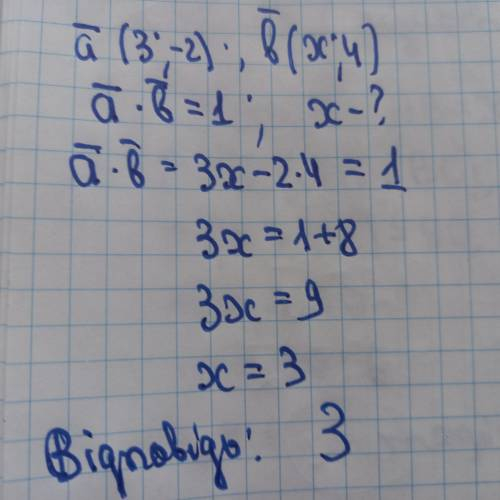 a̅ (3; -2); b̅ (x; 4)
a̅ · b̅ = 1; x - ?
a̅ · b̅ = 3x - 2·4 = 1
3x = 1+8
3x = 9
x = 3
Відповідь: 3